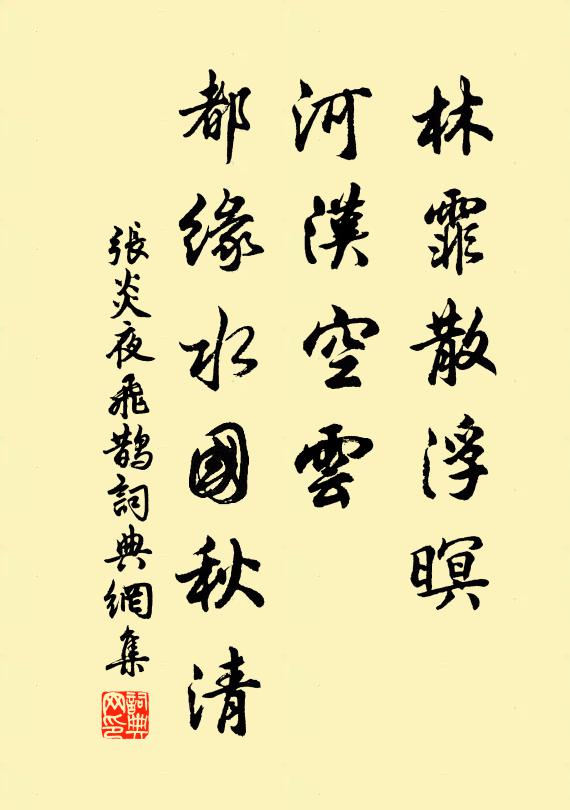 林霏散浮暝
河漢空雲
都緣水國秋清
張炎夜飛鵲詞典網集
詞典网印